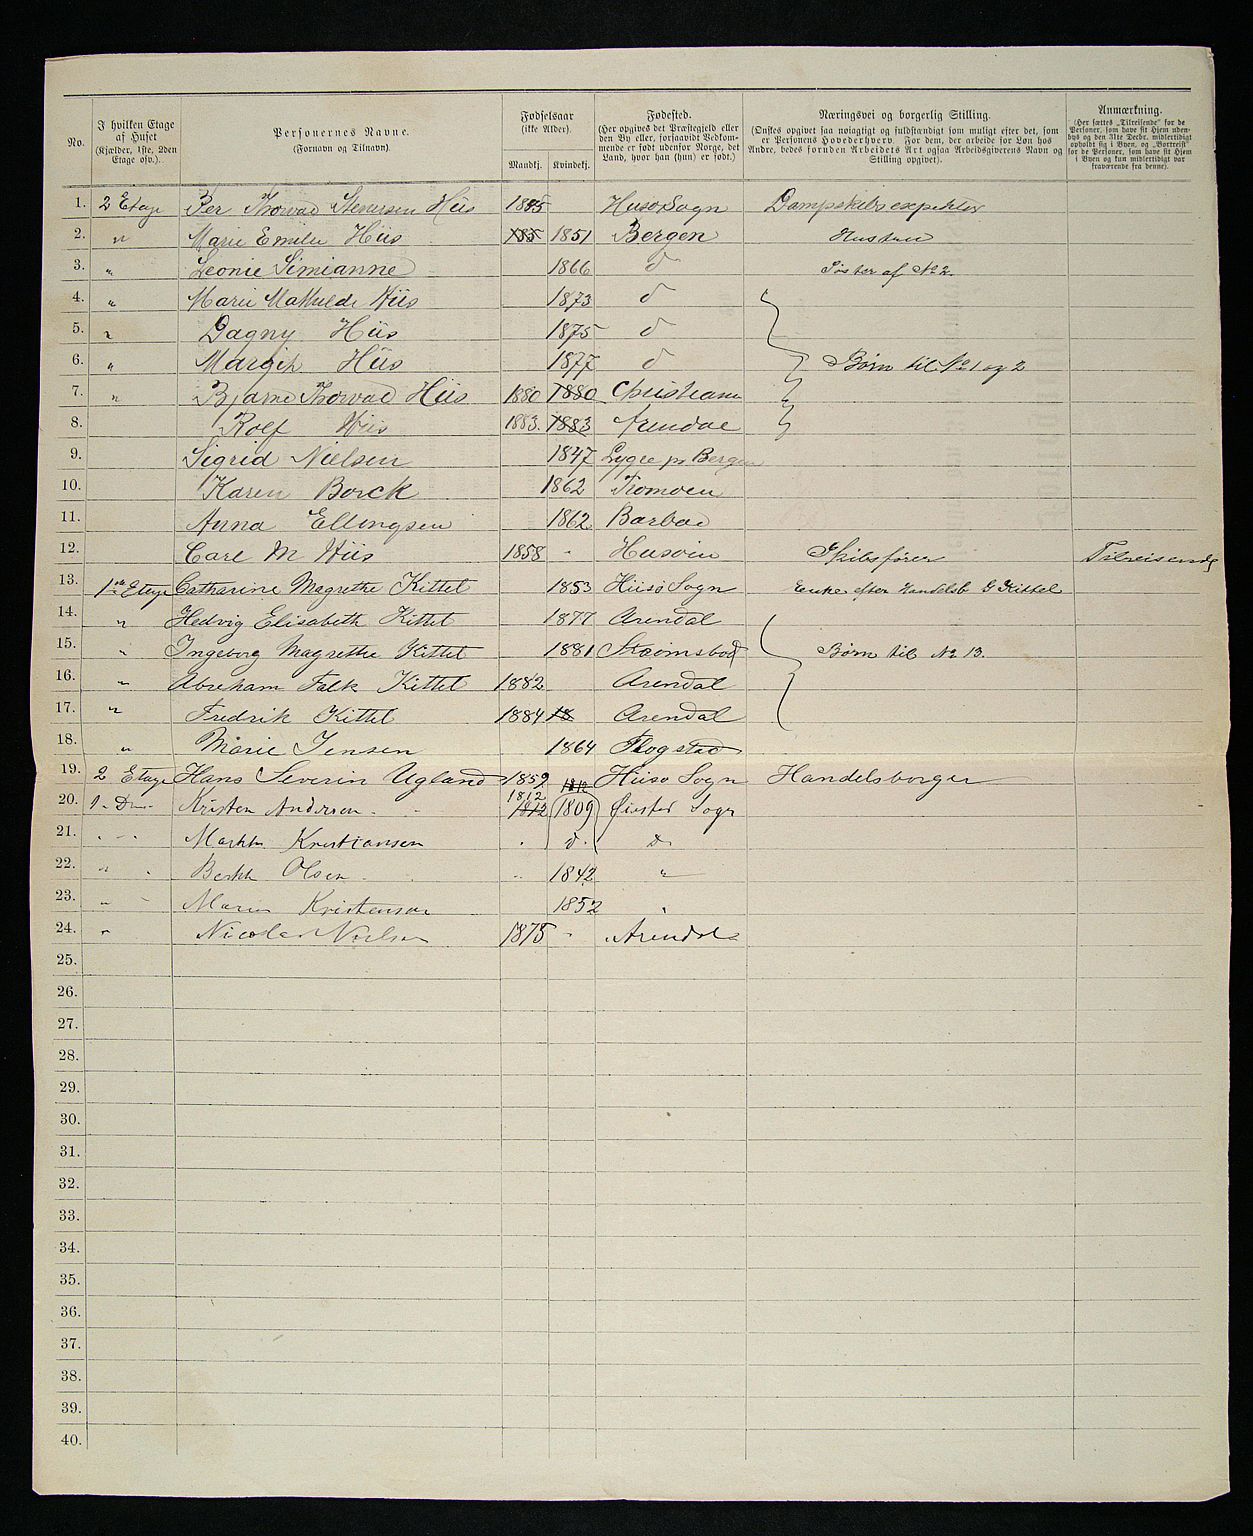 No. | I hvilken Etage af Huset (Kjælder, 1ste, 2den Etage osv.). | Personernes Navne. (Fornavn og Tilnavn). | Fødselsaar (ikke Alder). Mandkj. | Kvindekj. | Fødested. (Her opgives det Præstegjeld eller den By eller, forsaavidt Vedkommende er født udenfor Norge, det Land, hvor han (hun) er født.) | Næringsvei og borgerlig Stilling. (Ønskes opgivet saa nøiagtigt og fuldstændigt som muligt efter det, som er Personens Hovederhverv. For dem, der arbeide for Løn hos Andre, bedes foruden Arbeidets Art ogsaa Arbeidsgiverens Navn og Stilling opgivet). | Anmærkning. (Her sættes „Tilreisende" for de Personer, som have sit Hjem udenbys og den 31te Decbr. midlertidigt opholdt sig i Byen, og „Bortreist" for de Personer, som have sit Hjem i Byen og kun midlertidigt var fraværende fra denne).
1. | 2 Etage | Per Thorvad Hiis | | | Sogn | Dampskibsexpeditør
2. | " | Marie Emilie Hiis | 185 | 1851 | Bergen | Hustru
3. | " | Leonie Simianne | | 1866 | d | Søster af No 2.
4. | " | Marie Mathilde Hiis | | 1873 | d
5. | " | Dagny Hiis | | 1875 | d
6. | " | Margit Hiis | | 1877 | d | Børn til No 1 og 2
7. | " | Bjarne Thorvad Hiis | 1880 | 1880 | Christiania
8. | Rolf Hiis | 1883. | 1883 | Arendal
9. | Sigrid Nielsen | | 1847 | Lygre pr Bergen
10. | Karen Borck | | 1862 | Tromøen
11. | Anna Ellingsen | | 1862 | Barbo
12. | Carl M Hiis | 1858 | - | Husøien | Skibsfører | Tilreisende
13. | 1ste Etage | Catharine Magrethe Kittel | | 1853 | Hiisø Sogn | Enke efter Handelsb G Kittel
14. | " | Hedvig Elisabeth Kittel | | 1877 | Arendal
15. | " | Ingeborg Magrethe Kittel | | 1881 | Strømsbod | Børn til No 13.
16. | " | Abraham Falk Kittel | 1882 | | Arendal
17. | " | Fredrik Kittel | 1884 | 18 | Arendal
18. | " | Marie Jensen | | 1864 | Flogstad
19. | 2 Etage | Hans Severin Ugland | 1859 | 1812 | Hiisø Sogn | Handelsborger
20. | 1. Do | Kristen Andersen | 1812 1812 | 1809 | Øiestad Sogn
21. | " " | Kristiansen | . | d. | d
22. | " | Berthe Olsen | " | 1842 | "
23. | " | Maren Kristensen | | 1852 | "
24. | " | Nicolai Nielsen | 1875 | - | Arendal
25.
26.
27.
28.
29.
30.
31.
32.
33.
34.
35.
36.
37.
38.
39.
40.